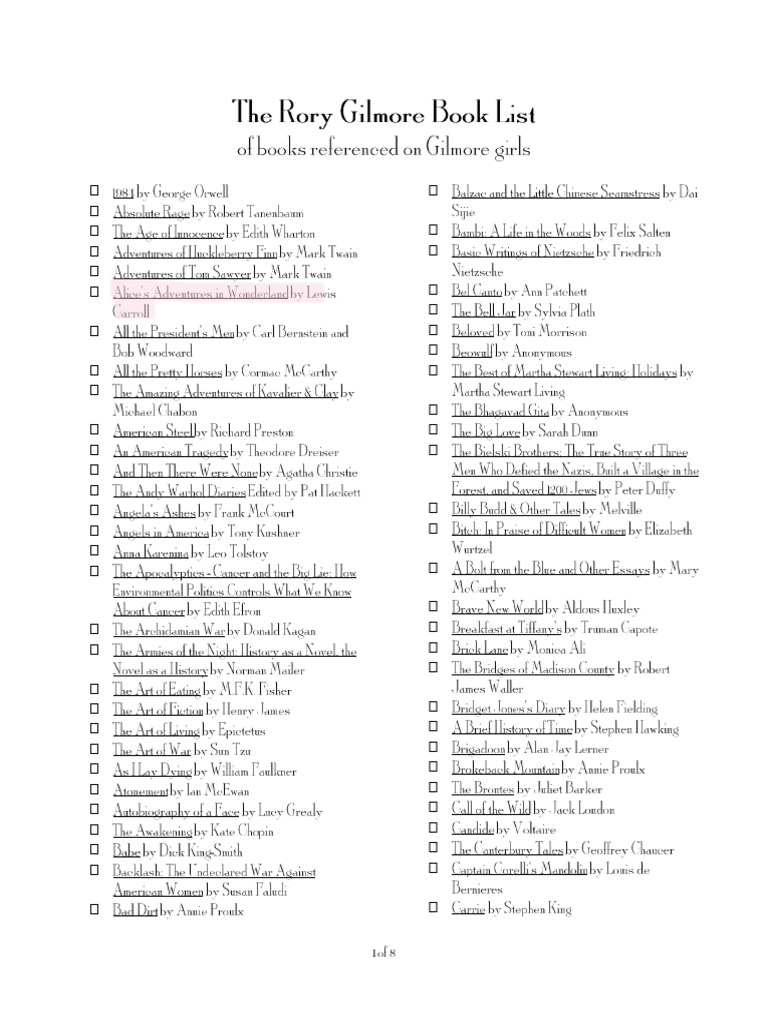 The Rory Gilmore Book List
of books referenced on Gilmore girls
1984 by George Orwell
Absolute Rage by Robert Tanenbaum
The Age of Innocence by Edith Wharton
Adventures of Huckleberry Finn by Mark Twain
Adventures of Tom Sawyer by Mark Twain
Alice's Adventures in Wonderland by Lewis
Carroll
All the President's Men by Carl Bernstein and
Bob Woodward
All the Pretty Horses by Cormac McCarthy
The Amazing Adventures of Kavalier & Clay by
Michael Chabon
American Steel by Richard Preston
An American Tragedy by Theodore Dreiser
And Then There Were None by Agatha Christie
The Andy Warhol Diaries Edited by Pat Hackett
Angela's Ashes by Frank McCourt
Angels in America by Tony Kushner
Anna Karenina by Leo Tolstoy
The Apocalyptics - Cancer and the Big Lie: How
Environmental Politics Controls What We Know
About Cancer by Edith Efron
The Archidamian War by Donald Kagan
The Armies of the Night: History as a Novel, the
Novel as a History by Norman Mailer
The Art of Eating by M.F.K. Fisher
The Art of Fiction by Henry James
The Art of Living by Epictetus
The Art of War by Sun Tzu
As I Lay Dying by William Faulkner
Atonement by Ian McEwan
Autobiography of a Face by Lucy Grealy
The Awakening by Kate Chopin
Babe by Dick King-Smith
Backlash: The Undeclared War Against
American Women by Susan Faludi
Bad Dirt by Annie Proulx
Balzac and the Little Chinese Seamstress by Dai
Sijie
Bambi: A Life in the Woods by Felix Salten
Basic Writings of Nietzsche by Friedrich
Nietzsche
Bel Canto by Ann Patchett
The Bell Jar by Sylvia Plath
Beloved by Toni Morrison
Beowulf by Anonymous
The Best of Martha Stewart Living: Holidays by
Martha Stewart Living
The Bhagavad Gita by Anonymous
The Big Love by Sarah Dunn
The Bielski Brothers: The True Story of Three
Men Who Defied the Nazis, Built a Village in the
Forest, and Saved 1200 Jews by Peter Duffy
Billy Budd & Other Tales by Melville
Bitch: In Praise of Difficult Women by Elizabeth
Wurtzel
A Bolt from the Blue and Other Essays by Mary
McCarthy
Brave New World by Aldous Huxley
Breakfast at Tiffany's by Truman Capote
Brick Lane by Monica Ali
The Bridges of Madison County by Robert
James Waller
Bridget Jones's Diary by Helen Fielding
A Brief History of Time by Stephen Hawking
Brigadoon by Alan Jay Lerner
Brokeback Mountain by Annie Proulx
The Brontes by Juliet Barker
Call of the Wild by Jack London
Candide by Voltaire
The Canterbury Tales by Geoffrey Chaucer
Captain Corelli's Mandolin by Louis de
Bernieres
Carrie by Stephen King
1 of 8